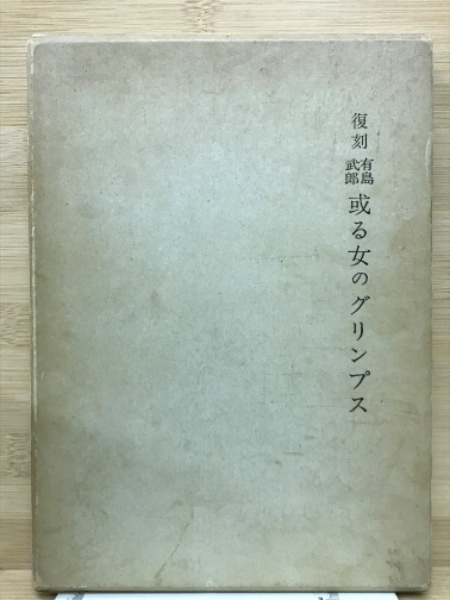 復刻 有島武郎 或る女のグリンプス